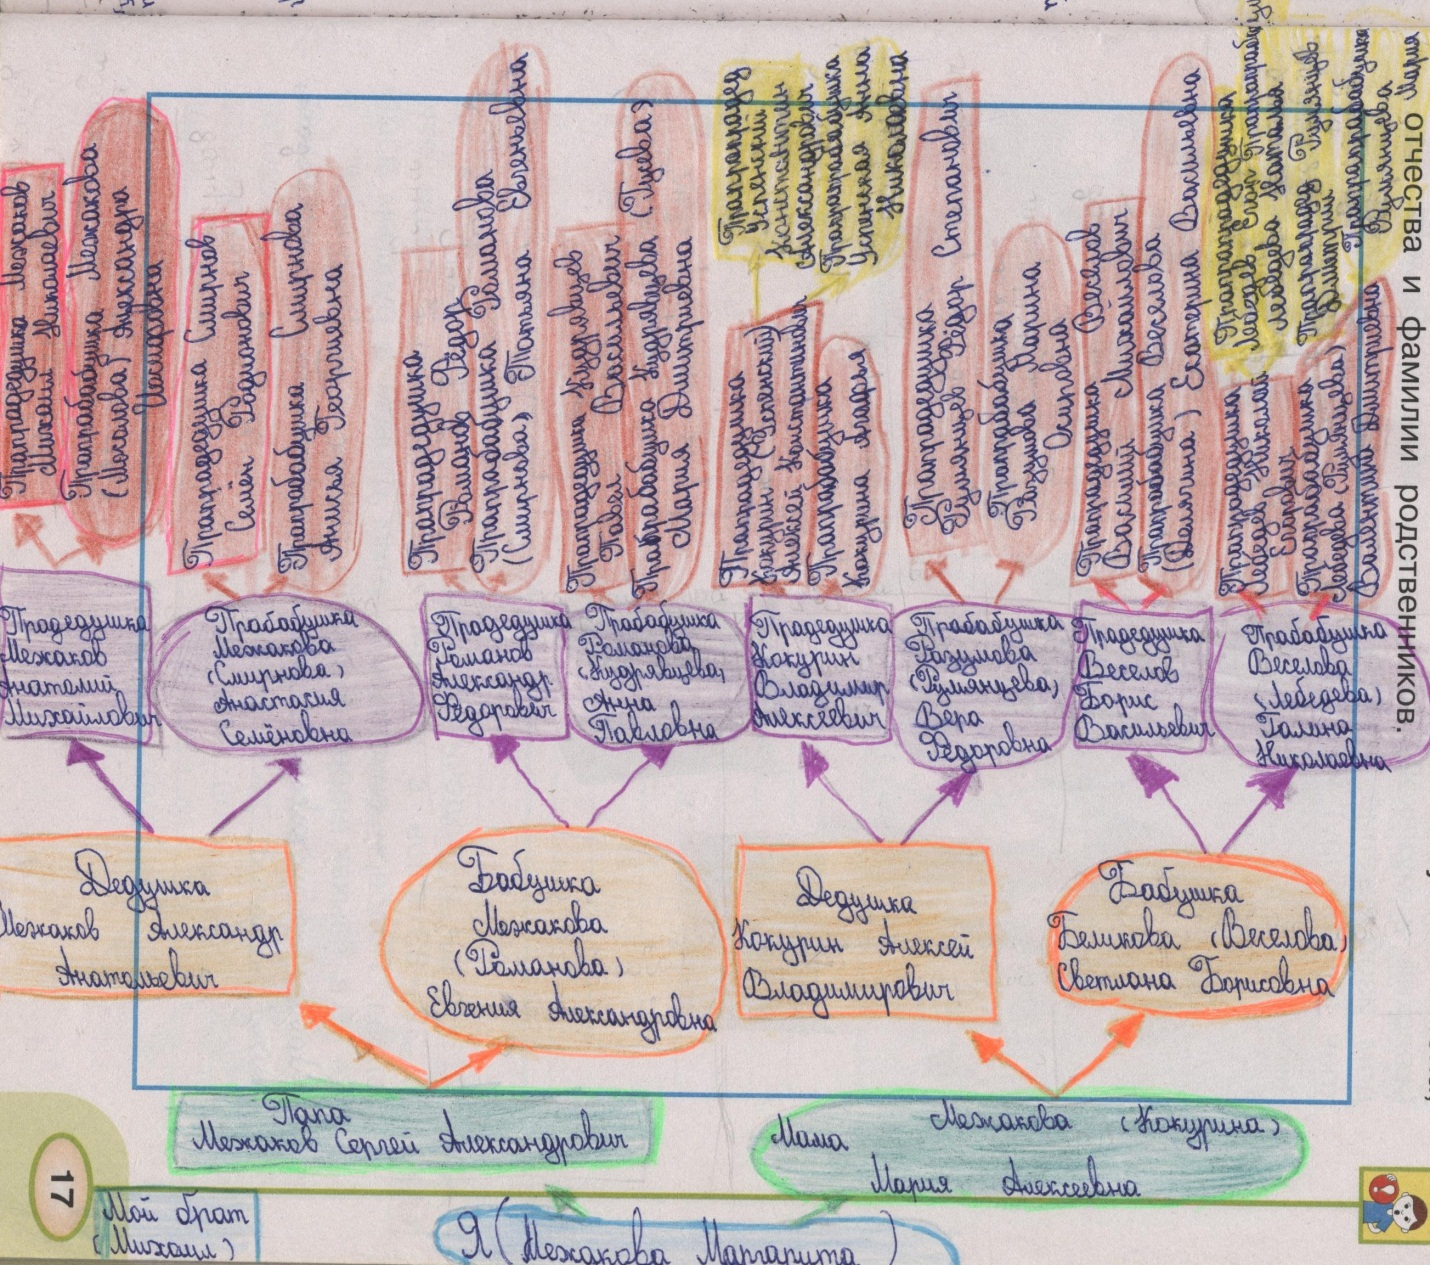 отчества и фамилии родственников.
Прапрадедушка Межаков
Михаил Николаевич
Прапрабабушка Межакова
Александра
Прапрадедушка Смирнов
Семён Родионович
Прапрабабушка Смирнова
Анисья Георгиевна
Прапрадедушка
Романов Фёдор
Прапрабабушка Романова
(Смирнова) Татьяна Евгеньевна
Прапрадедушка Кудрявцев
Павел Васильевич
Прапрабабушка Кудрявцева (Гусева)
Мария Дмитриевна
Прапрапрадед
Успенский
Константин
Александрович
Прапрапрабабушка
Успенская Анна
Николаевна
Прапрадедушка
Кокурин (Успенский)
Алексей Константинович
Прапрабабушка
Кокурина
Прапрадедушка
Румянцев Фёдор Степанович
Прапрабабушка
Разумова Марина
Осиповна
Прапрадедушка Веселов
Василий Михайлович
Прапрабабушка Веселова
Екатерина Васильевна
Прапрапрадедушка
Лебедев Егор
Прапрапрабабушка
Лебедева Наталья
Прапрапрадед Румянцев
Дмитрий
Прапрапрабабушка
Румянцева
Мария
Прапрадедушка
Лебедев Николай
Егорович
Прапрабабушка
Лебедева (Румянцева)
Валентина Дмитриевна
Прадедушка
Межаков
Анатолий
Михайлович
Прабабушка
Межакова
(Смирнова)
Анастасия
Семёновна
Прадедушка
Романов
Александр
Фёдорович
Прабабушка
Романова
(Кудрявцева)
Анна
Павловна
Прадедушка
Кокурин
Владимир
Алексеевич
Прабабушка
Разумова
(Румянцева)
Вера
Фёдоровна
Прадедушка
Веселов
Борис
Васильевич
Прабабушка
Веселова
(Лебедева)
Галина
Николаевна
Дедушка
Межаков Александр
Анатольевич
Бабушка
Межакова
(Романова)
Евгения Александровна
Дедушка
Кокурин Алексей
Владимирович
Бабушка
Беликова (Веселова)
Светлана Борисовна
Папа
Межаков Сергей Александрович
Мама Межакова (Кокурина)
Мария Алексеевна
17
Мой брат
(Михаил)
Я (Межакова Маргарита)